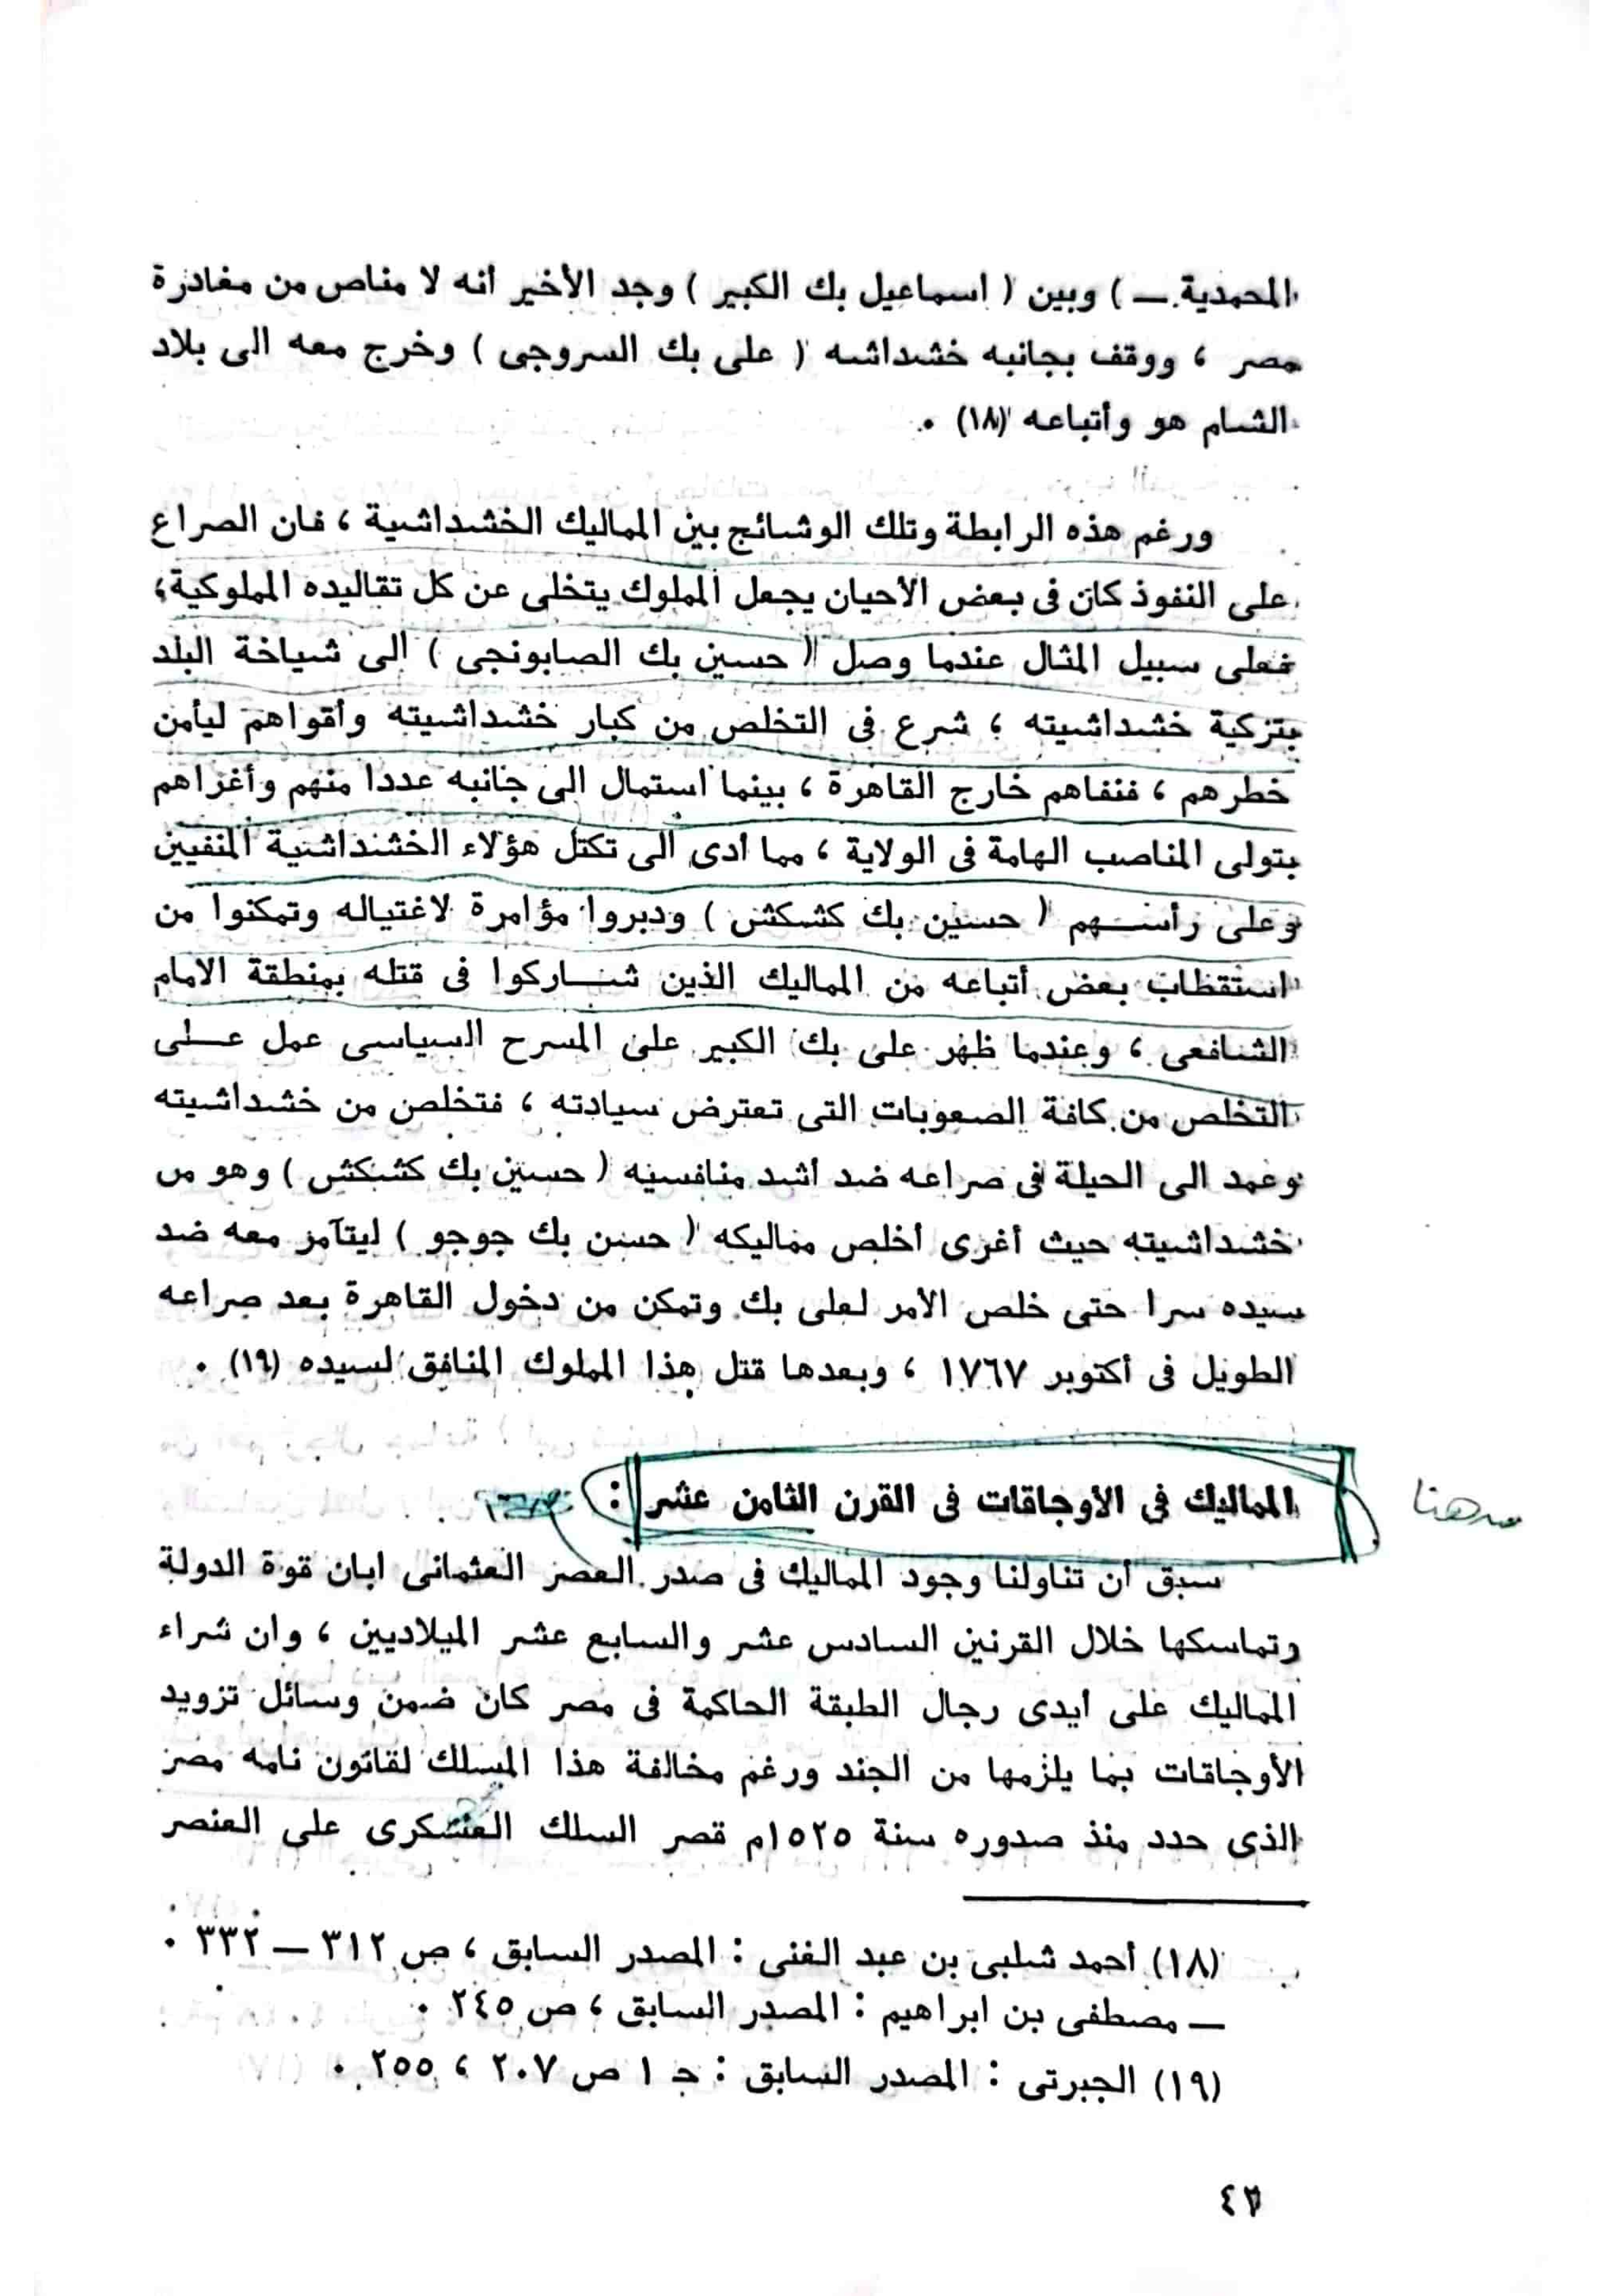 المحمدية ــ ) وبين ( اسماعيل بك الكبير ) وجد الأخير أنه لا مناص من مغادرة
مصر ، ووقف بجانبه خشداشه ( على بك السروجى ) وخرج معه الى بلاد
الشام هو وأتباعه (١٨) .
ورغم هذه الرابطة وتلك الوشائج بين المماليك الخشداشية ، فان الصراع
على النفوذ كان فى بعض الأحيان يجعل المملوك يتخلى عن كل تقاليده المملوكية ،
فعلى سبيل المثال عندما وصل ( حسين بك الصابونجى ) الى شياخة البلد
بتزكية خشداشيته ، شرع فى التخلص من كبار خشداشيته وأقواهم ليأمن
خطرهم ، فنفاهم خارج القاهرة ، بينما استمال الى جانبه عددا منهم وأغراهم
بتولى المناصب الهامة فى الولاية ، مما أدى الى تكتل هؤلاء الخشداشية المنفيين
وعلى رأســهم ( حسين بك كشكش ) ودبروا مؤامرة لاغتياله وتمكنوا من
استقطاب بعض أتباعه من المماليك الذين شــاركوا فى قتله بمنطقة الامام
الشافعى ، وعندما ظهر على بك الكبير على المسرح السياسى عمل عــلى
التخلص من كافة الصعوبات التى تعترض سيادته ، فتخلص من خشداشيته
وعمد الى الحيلة فى صراعه ضد أشد منافسيه ( حسين بك كشكش ) وهو من
خشداشيته حيث أغرى أخلص مماليكه ( حسن بك جوجو ) ليتآمر معه ضد
سيده سرا حتى خلص الأمر لعلى بك وتمكن من دخول القاهرة بعد صراعه
الطويل فى أكتوبر ١٧٦٧ ، وبعدها قتل هذا المملوك المنافق لسيده (١٩) .
المماليك فى الأوجاقات فى القرن الثامن عشر :
من هنا
سبق أن تناولنا وجود المماليك فى صدر العصر العثمانى ابان قوة الدولة
وتماسكها خلال القرنين السادس عشر والسابع عشر الميلاديين ، وان شراء
المماليك على أيدى رجال الطبقة الحاكمة فى مصر كان ضمن وسائل تزويد
الأوجاقات بما يلزمها من الجند ورغم مخالفة هذا المسلك لقانون نامه مصر
الذى حدد منذ صدوره سنة ١٥٢٥م قصر السلك العسكرى على العنصر
(١٨) أحمد شلبى بن عبد الغنى : المصدر السابق ، ص ٣١٢ ــ ٣٣٢ .
ــ مصطفى بن ابراهيم : المصدر السابق ، ص ٢٤٥ .
(١٩) الجبرتى : المصدر السابق : ج ١ ص ٢٠٧ ، ٢٥٥ .
٤٢